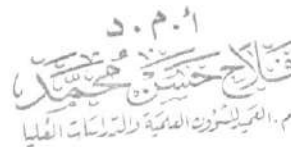 أ.م.د
فلاح حسن محمد
م.العميد للشؤون العلمية والدراسات العليا